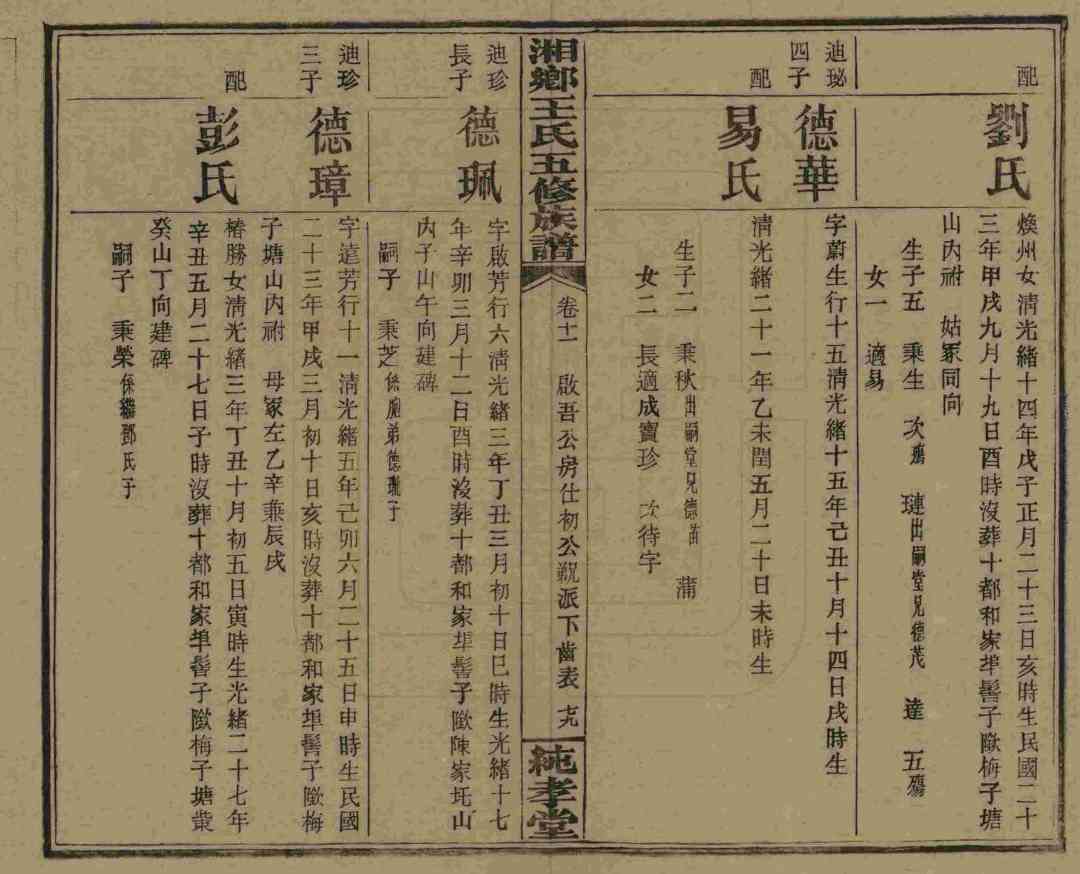 配
劉氏
煥州女淸光緒十四年戊子正月二十三日亥時生民國二十
三年甲戌九月十九日酉時沒葬十都和家埠髻子㘰梅子塘
山內祔 姑冢同向
生子五 秉生 次殤 璉出嗣堂兄德茂 達 五殤
女一 適易
迪珌
四子
德華
字蔚生行十五淸光緒十五年己丑十月十四日戌時生
配
易氏
淸光緒二十一年乙未閏五月二十日未時生
生子二 秉秋出嗣堂兄德 蒲
女二 長適成寶珍 次待字
湘鄕王氏五修族譜
卷十一 啟吾公房仕初公觀派下齒表 十九
純孝堂
迪珍
長子
德珮
字啟芳行六淸光緒三年丁丑三月初十日巳時生光緒十七
年辛卯三月十二日酉時沒葬十都和家埠髻子㘰陳家坵山
內子山午向建碑
嗣子 秉芝係胞弟德 子
迪珍
三子
德璋
字達芳行十一淸光緒五年己卯六月二十五日申時生民國
二十三年甲戌三月初十日亥時沒葬十都和家埠髻子㘰梅
子塘山內祔 母冢左乙辛兼辰戌
配
彭氏
椿勝女淸光緒三年丁丑十月初五日寅時生光緒二十七年
辛丑五月二十七日子時沒葬十都和家埠髻子㘰梅子塘
癸山丁向建碑
嗣子 秉榮係繼鄧氏子